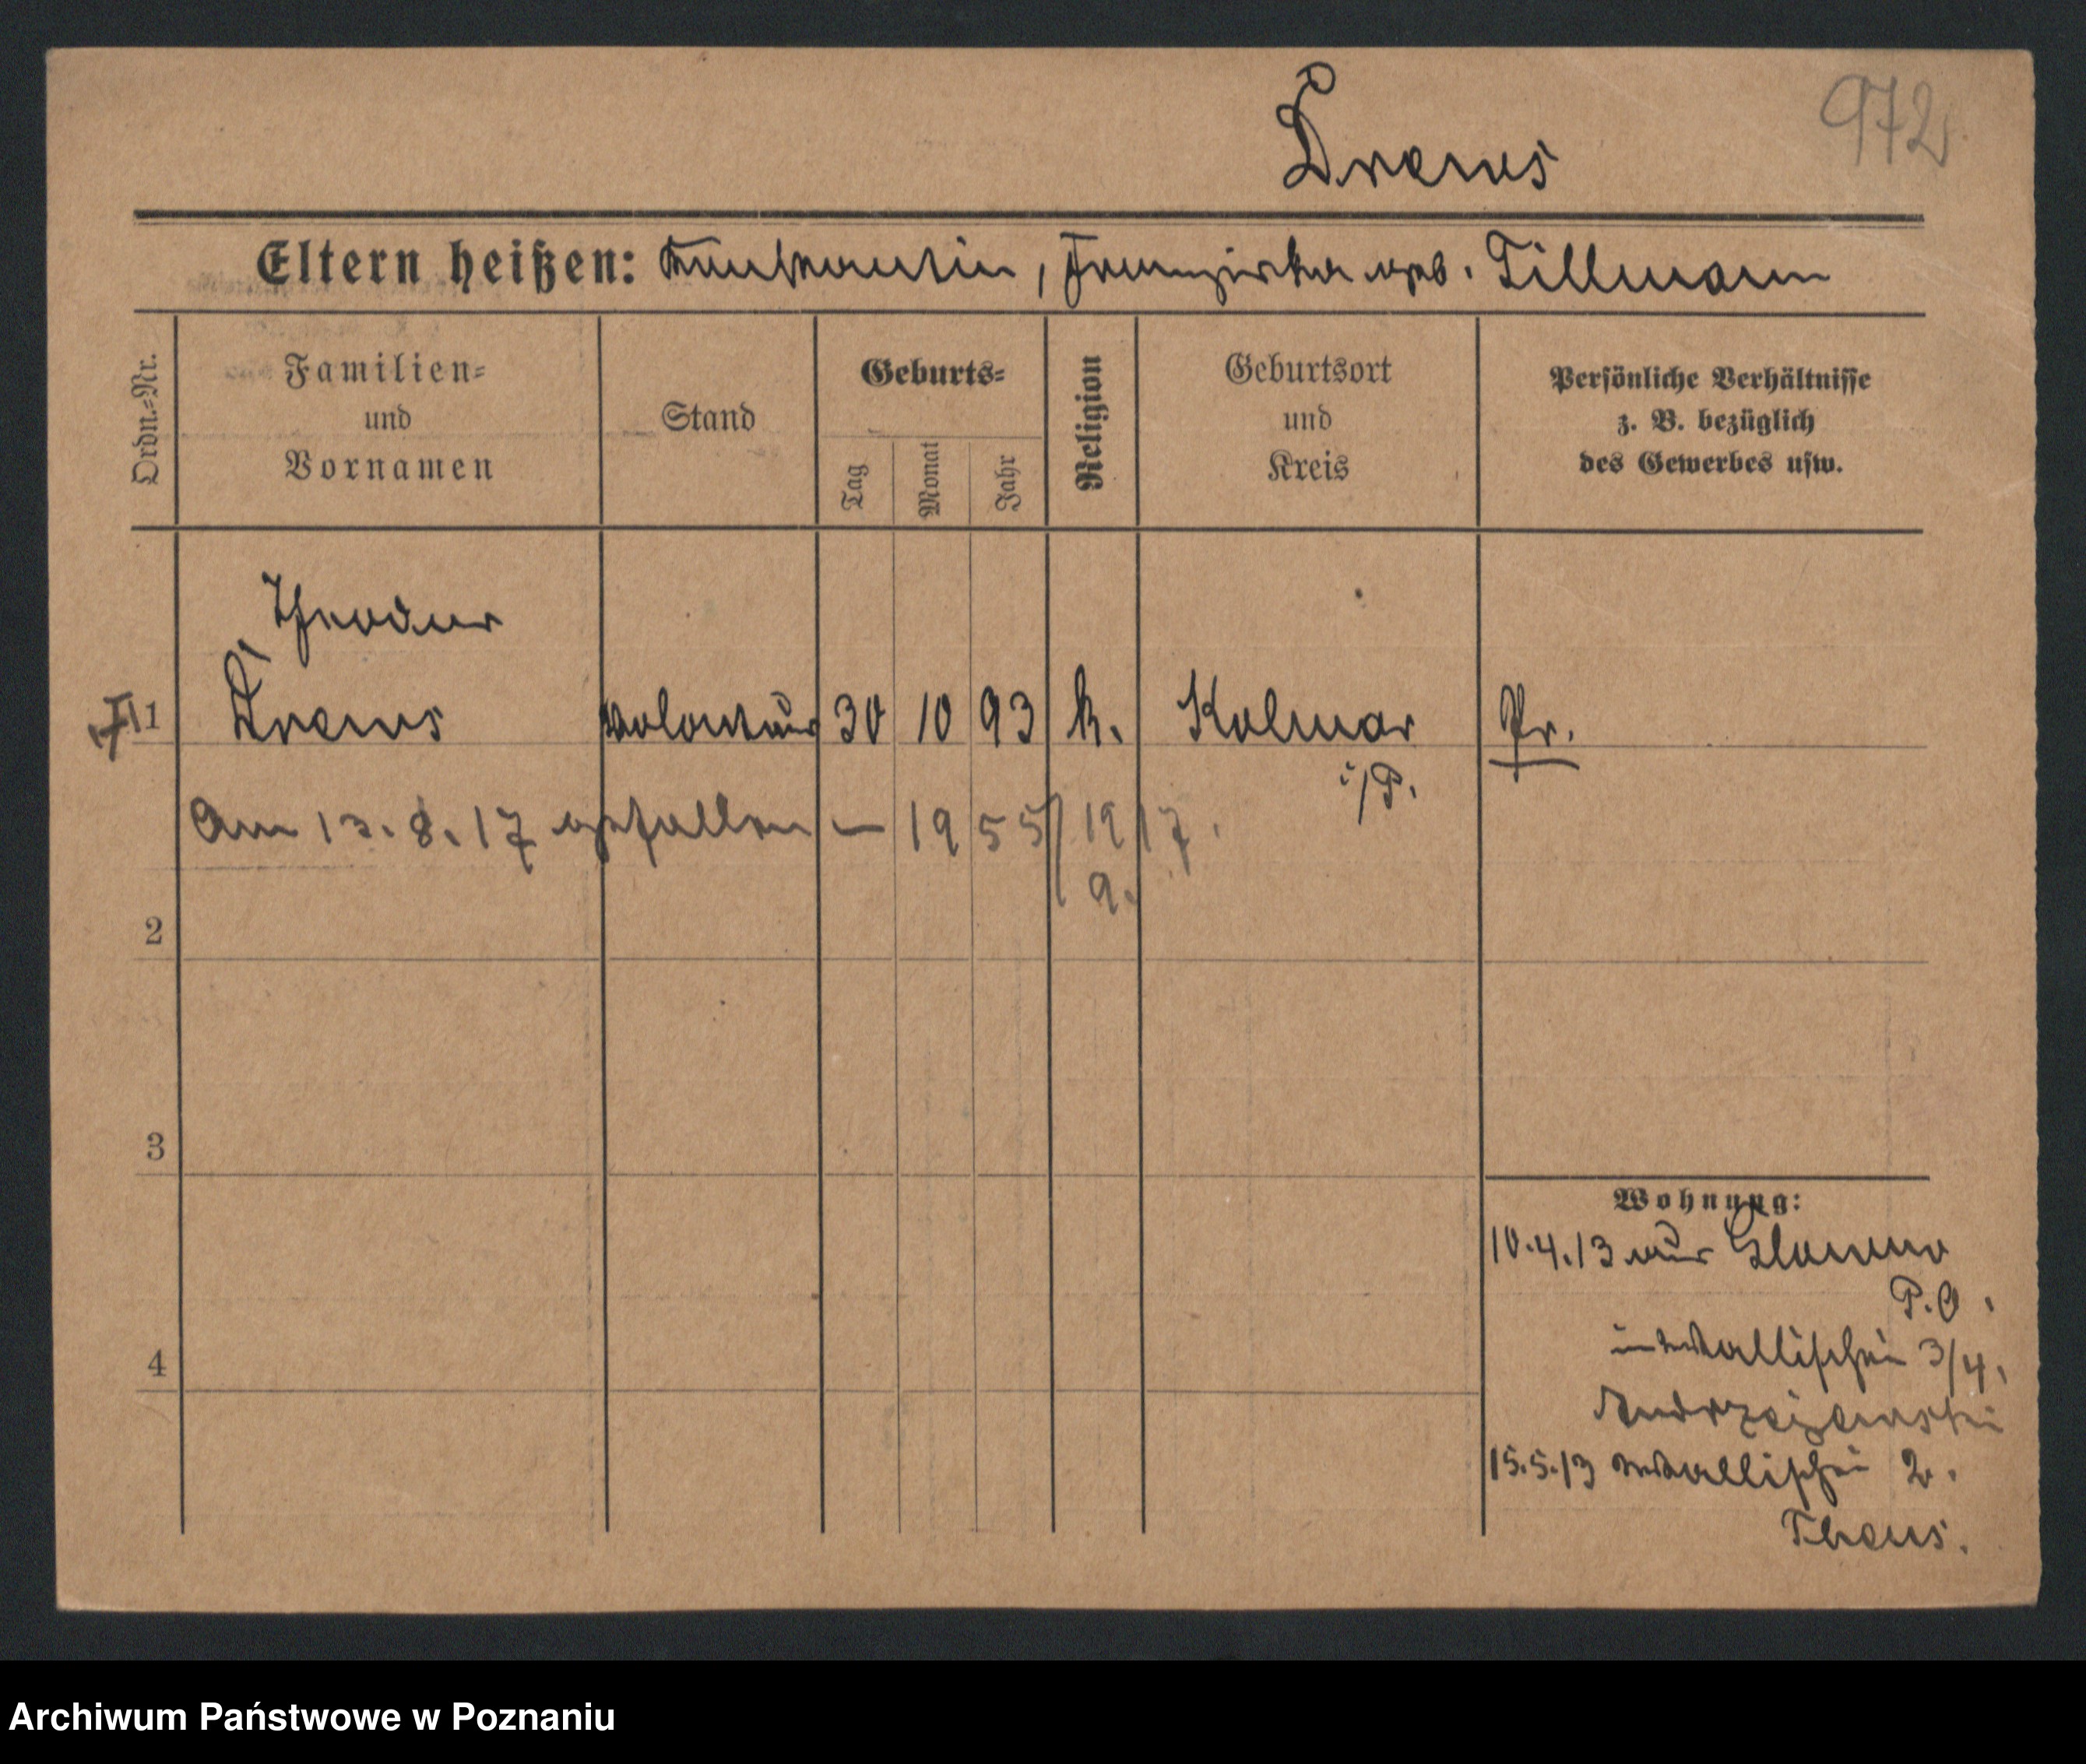 972
Drews
Eltern heißen: Konstantin, Franziska geb. Tillmann
Ordn.-Nr.
Familien-
und
Vornamen
Stand
Geburts-
Tag
Monat
Jahr
Religion
Geburtsort
und
Kreis
Persönliche Verhältnisse
z. B. bezüglich
des Gewerbes usw.
Theodor
1 Drews Volontär 30 10 93 k. Kolmar Pr.
i/P.
Am 13.8.17 gefallen – 1955/1917.
9.
2
3
4
Wohnung:
10.4.13 aus
P.O.
Wallischei 3/4,
Andrzejewski
15.5.13 Wallischei 2.
Theus.
Archiwum Państwowe w Poznaniu